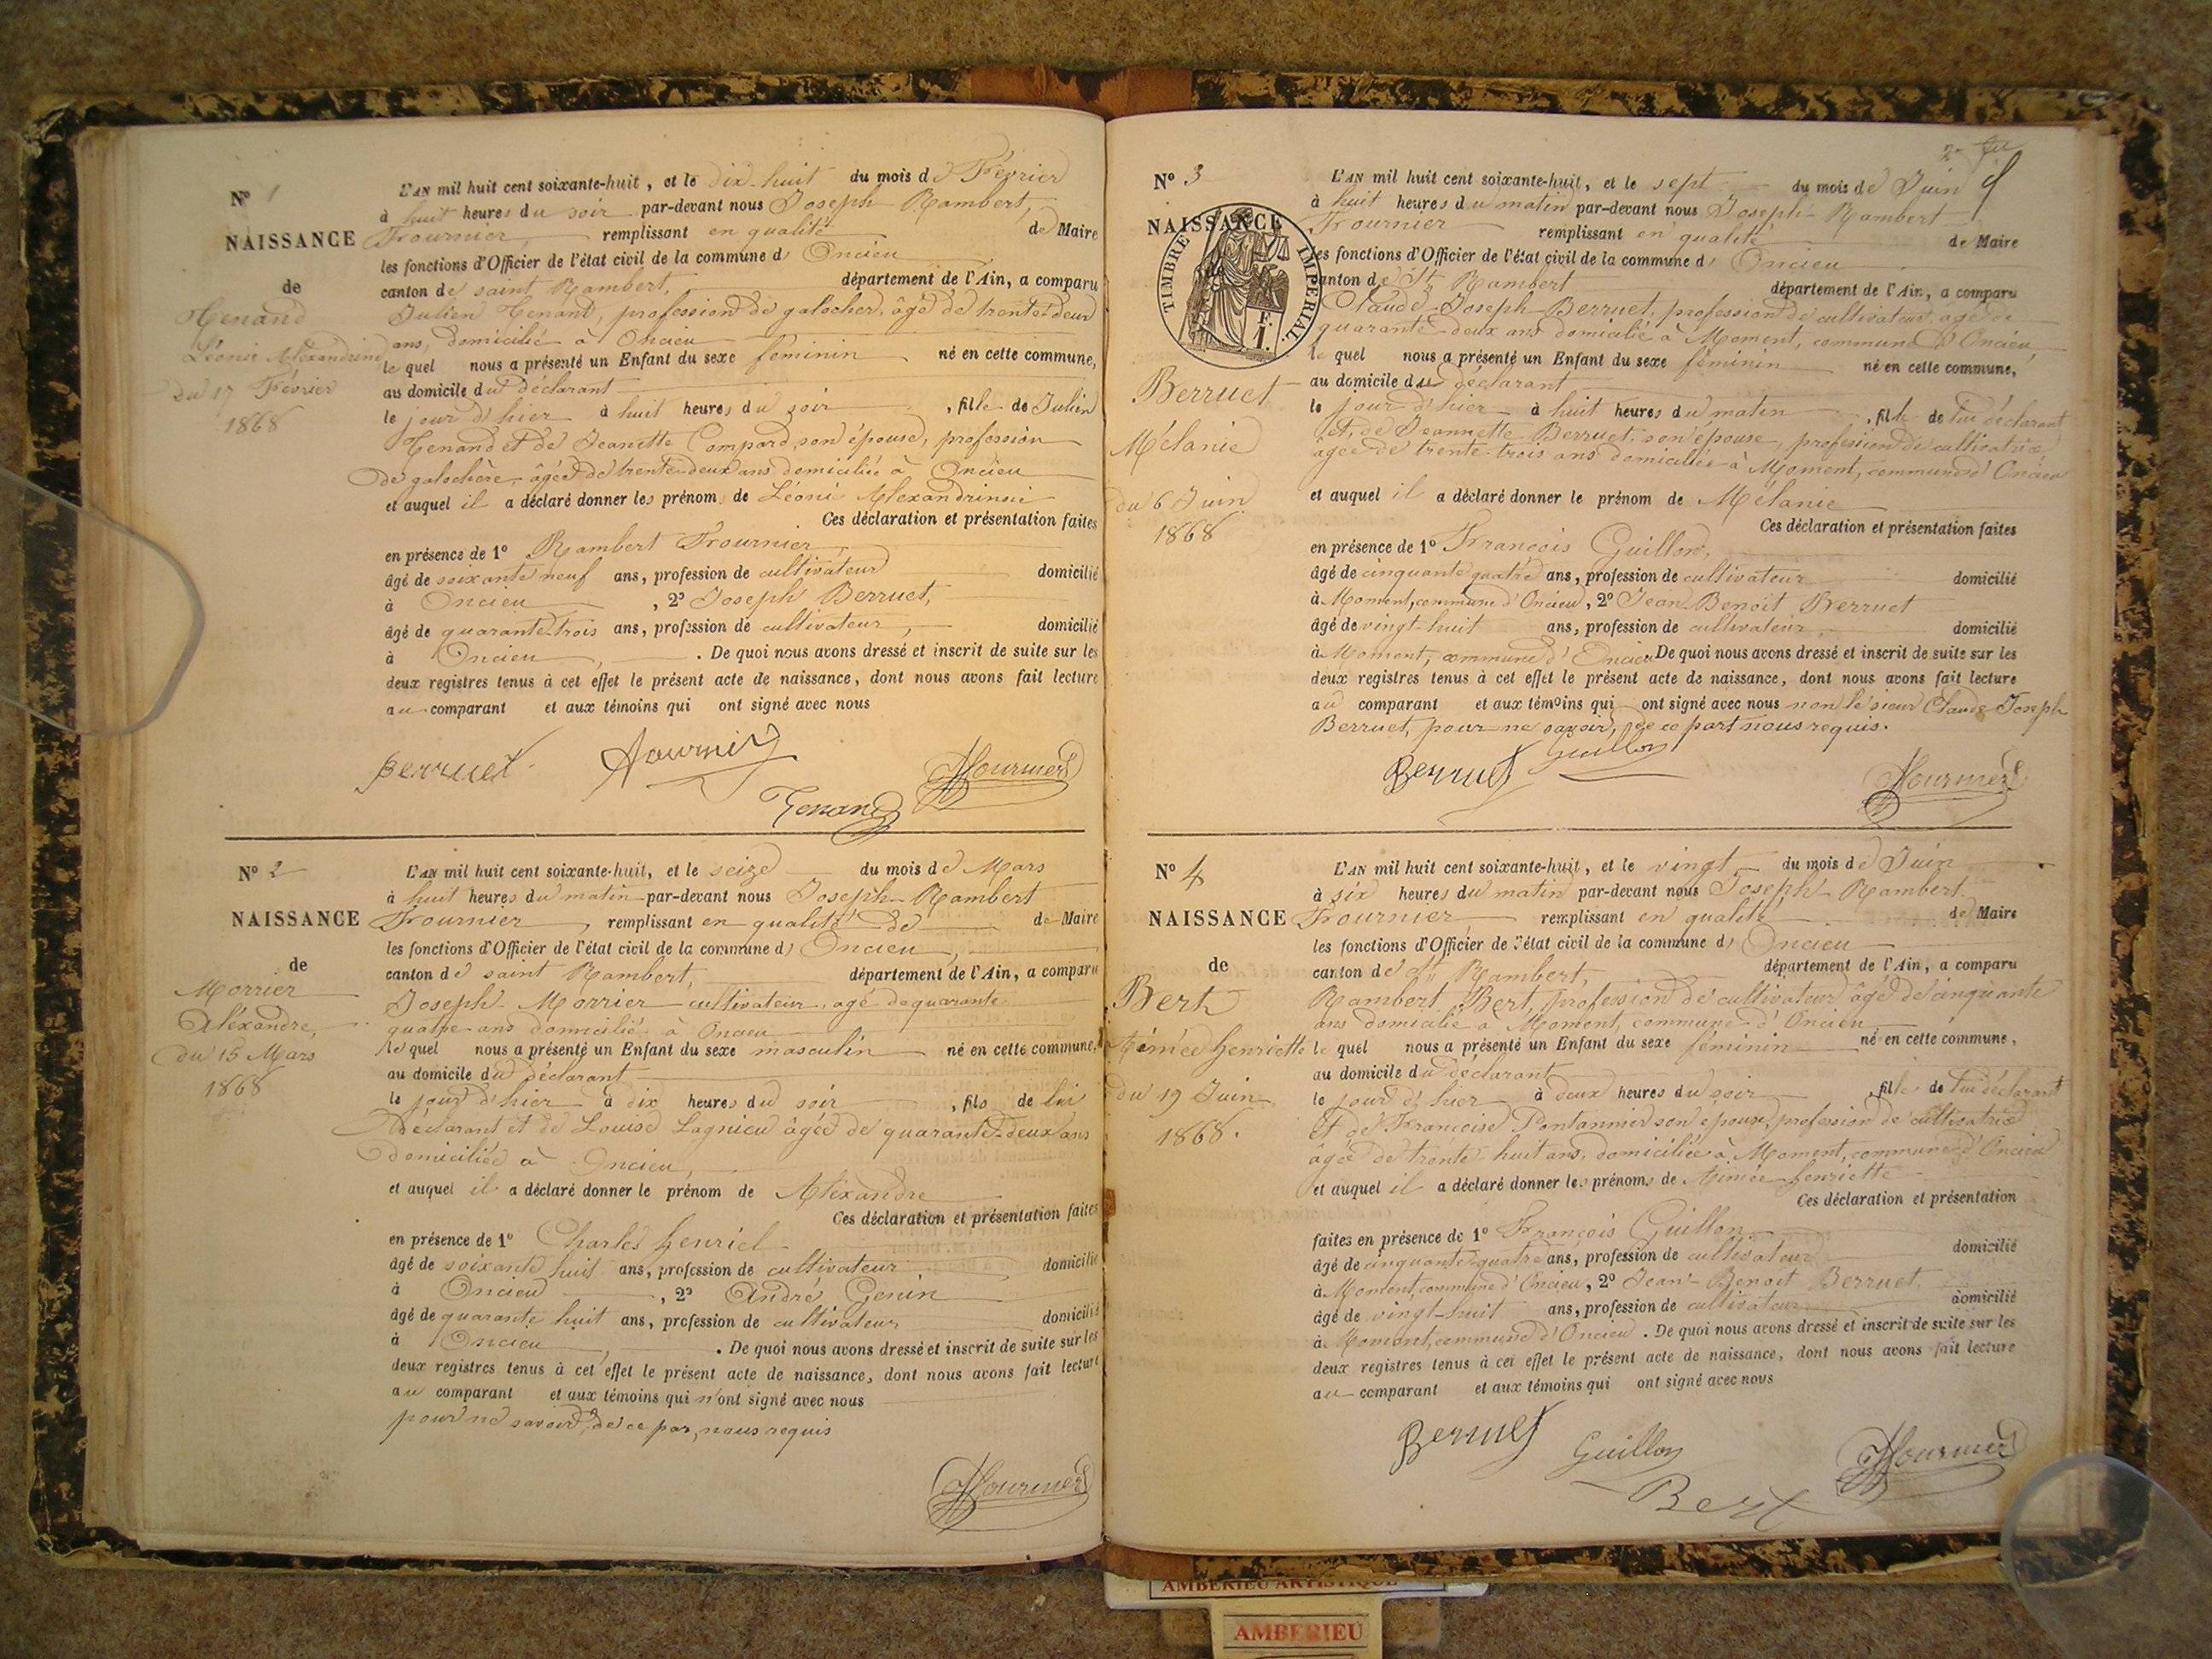 N° 1
NAISSANCE
de
Tenand
Léonie Alexandrine
du 17 Février
1868
L'AN mil huit cent soixante-huit, et le dix-huit du mois de Février
à huit heures du soir par-devant nous Joseph Rambert,
Fournier, remplissant en qualité de Maire
les fonctions d'Officier de l'état civil de la commune d' Oncieu
canton de saint Rambert, département de l'Ain, a comparu
Julien Tenand, profession de galocher, âgé de trente-deux
ans, domicilié à Oncieu
le quel nous a présenté un Enfant du sexe féminin né en cette commune,
au domicile du déclarant
le jour d'hier à huit heures du soir, fille de Julien
Tenand et de Jeanette Compard, son épouse, profession
de galochère, âgée de trente-deux ans domiciliée à Oncieu
et auquel il a déclaré donner les prénoms de Léonie Alexandrine
Ces déclaration et présentation faites
en présence de 1° Rambert Fournier,
âgé de soixante neuf ans, profession de cultivateur domicilié
à Oncieu, 2° Joseph Berruet,
âgé de quarante-trois ans, profession de cultivateur, domicilié
à Oncieu, . De quoi nous avons dressé et inscrit de suite sur les
deux registres tenus à cet effet le présent acte de naissance, dont nous avons fait lecture
au comparant et aux témoins qui ont signé avec nous
Berruet Fournier Fournier
Tenand
N° 2
NAISSANCE
de
Morrier
Alexandre,
du 15 Mars
1868
L'AN mil huit cent soixante-huit, et le seize du mois de Mars
à huit heures du matin par-devant nous Joseph Rambert
Fournier, remplissant en qualité de de Maire
les fonctions d'Officier de l'état civil de la commune d' Oncieu,
canton de saint Rambert, département de l'Ain, a comparu
Joseph Morrier cultivateur, agé de quarante
quatre ans domicilié à Oncieu
le quel nous a présenté un Enfant du sexe masculin né en cette commune,
au domicile du déclarant
le jour d'hier à dix heures du soir, fils de lui
déclarant et de Louise Lagnieu âgée de quarante-deux ans
domiciliée à Oncieu,
et auquel il a déclaré donner le prénom de Alexandre
Ces déclaration et présentation faites
en présence de 1° Charles henriel
âgé de soixante huit ans, profession de cultivateur, domicilié
à Oncieu, 2° André Genin
âgé de quarante huit ans, profession de cultivateur domicilié
à Oncieu, . De quoi nous avons dressé et inscrit de suite sur les
deux registres tenus à cet effet le présent acte de naissance, dont nous avons fait lecture
au comparant et aux témoins qui n'ont signé avec nous
pour ne savoir, de ce par, nous requis
Fournier
N° 3
NAISSANCE
de
TIMBRE IMPERIAL
1 F.
Berruet
Mélanie
du 6 Juin
1868
L'AN mil huit cent soixante-huit, et le sept du mois de Juin
à huit heures du matin par-devant nous Joseph Rambert
Fournier remplissant en qualité de Maire
les fonctions d'Officier de l'état civil de la commune d' Oncieu
canton de St Rambert département de l'Ain, a comparu
Claude-Joseph Berruet, profession de cultivateur, âgé de
quarante-deux ans domicilié à Moment, commune d'Oncieu
le quel nous a présenté un Enfant du sexe féminin né en cette commune,
au domicile du déclarant
le jour d'hier à huit heures du matin, fille de lui déclarant
et de Jeannette Berruet, son épouse, profession de cultivatrice
âgée de trente-trois ans domiciliée à Moment, commune d'Oncieu
et auquel il a déclaré donner le prénom de Mélanie
Ces déclaration et présentation faites
en présence de 1° François Guillon,
âgé de cinquante quatre ans, profession de cultivateur domicilié
à Moment, commune d'Oncieu, 2° Jean-Benoit Berruet
âgé de vingt-huit ans, profession de cultivateur, domicilié
à Moment, commune d'Oncieu De quoi nous avons dressé et inscrit de suite sur les
deux registres tenus à cet effet le présent acte de naissance, dont nous avons fait lecture
au comparant et aux témoins qui ont signé avec nous non le sieur Claude Joseph
Berruet, pour ne savoir, de ce part nous requis.
Berruet Guillon Fournier
N° 4
NAISSANCE
de
Bert
Aimée henriette
du 19 Juin
1868.
L'AN mil huit cent soixante-huit, et le vingt du mois de Juin
à six heures du matin par-devant nous Joseph Rambert
Fournier remplissant en qualité de Maire
les fonctions d'Officier de l'état civil de la commune d' Oncieu
canton de St Rambert, département de l'Ain, a comparu
Rambert Bert, profession de cultivateur âgé de cinquante
ans domicilié à Moment, commune d'Oncieu
le quel nous a présenté un Enfant du sexe féminin né en cette commune,
au domicile du déclarant
le jour d'hier à deux heures du soir, fille de lui déclarant
et de Françoise Pontannier son épouse, profession de cultivatrice
âgée de trente-huit ans, domiciliée à Moment, commune d'Oncieu
et auquel il a déclaré donner les prénoms de Aimée henriette
Ces déclaration et présentation
faites en présence de 1° François Guillon
âgé de cinquante-quatre ans, profession de cultivateur domicilié
à Moment, commune d'Oncieu, 2° Jean-Benoit Berruet,
âgé de vingt-huit ans, profession de cultivateur domicilié
à Moment, commune d'Oncieu. De quoi nous avons dressé et inscrit de suite sur les
deux registres tenus à cet effet le présent acte de naissance, dont nous avons fait lecture
au comparant et aux témoins qui ont signé avec nous
Berruet Guillon Fournier
Bert
AMBERIEU ARTISTIQUE
AMBERIEU